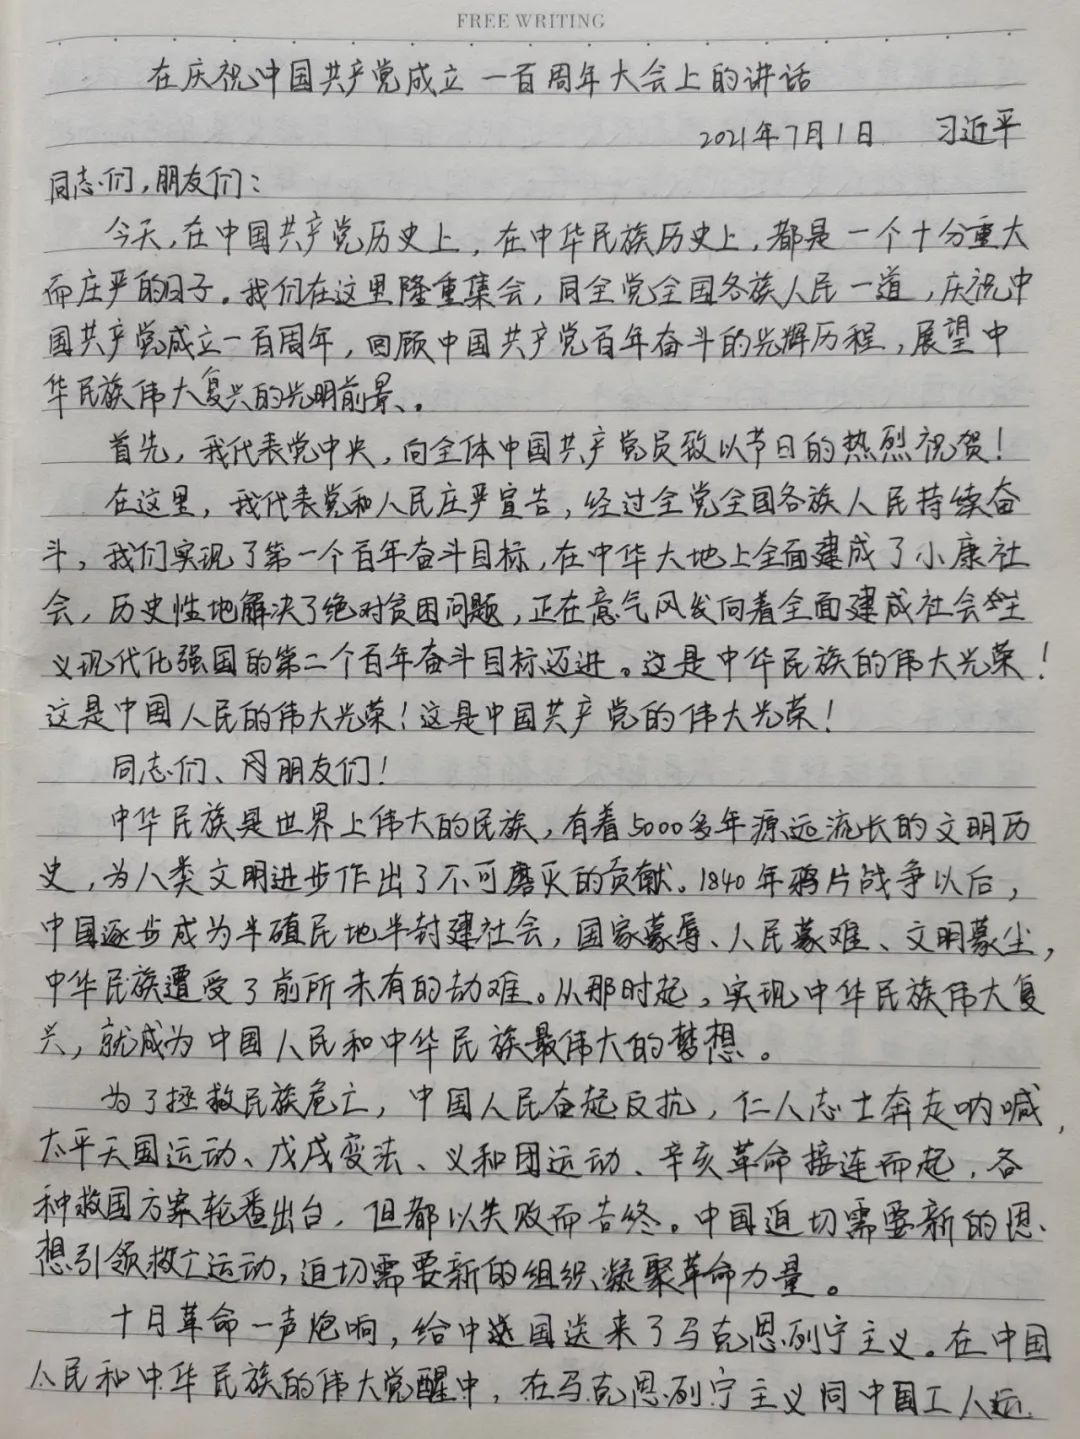 FREE WRITING
在庆祝中国共产党成立一百周年大会上的讲话
2021年7月1日 习近平
同志们,朋友们:
今天,在中国共产党历史上,在中华民族历史上,都是一个十分重大
而庄严的日子。我们在这里隆重集会,同全党全国各族人民一道,庆祝中
国共产党成立一百周年,回顾中国共产党百年奋斗的光辉历程,展望中
华民族伟大复兴的光明前景。
首先,我代表党中央,向全体中国共产党员致以节日的热烈祝贺!
在这里,我代表党和人民庄严宣告,经过全党全国各族人民持续奋
斗,我们实现了第一个百年奋斗目标,在中华大地上全面建成了小康社
会,历史性地解决了绝对贫困问题,正在意气风发向着全面建成社会主
义现代化强国的第二个百年奋斗目标迈进。这是中华民族的伟大光荣!
这是中国人民的伟大光荣!这是中国共产党的伟大光荣!
同志们、朋友们!
中华民族是世界上伟大的民族,有着5000多年源远流长的文明历
史,为人类文明进步作出了不可磨灭的贡献。1840年鸦片战争以后,
中国逐步成为半殖民地半封建社会,国家蒙辱、人民蒙难、文明蒙尘,
中华民族遭受了前所未有的劫难。从那时起,实现中华民族伟大复
兴,就成为中国人民和中华民族最伟大的梦想。
为了拯救民族危亡,中国人民奋起反抗,仁人志士奔走呐喊,
太平天国运动、戊戌变法、义和团运动、辛亥革命接连而起,各
种救国方案轮番出台,但都以失败而告终。中国迫切需要新的思
想引领救亡运动,迫切需要新的组织凝聚革命力量。
十月革命一声炮响,给中国送来了马克思列宁主义。在中国
人民和中华民族的伟大觉醒中,在马克思列宁主义同中国工人运